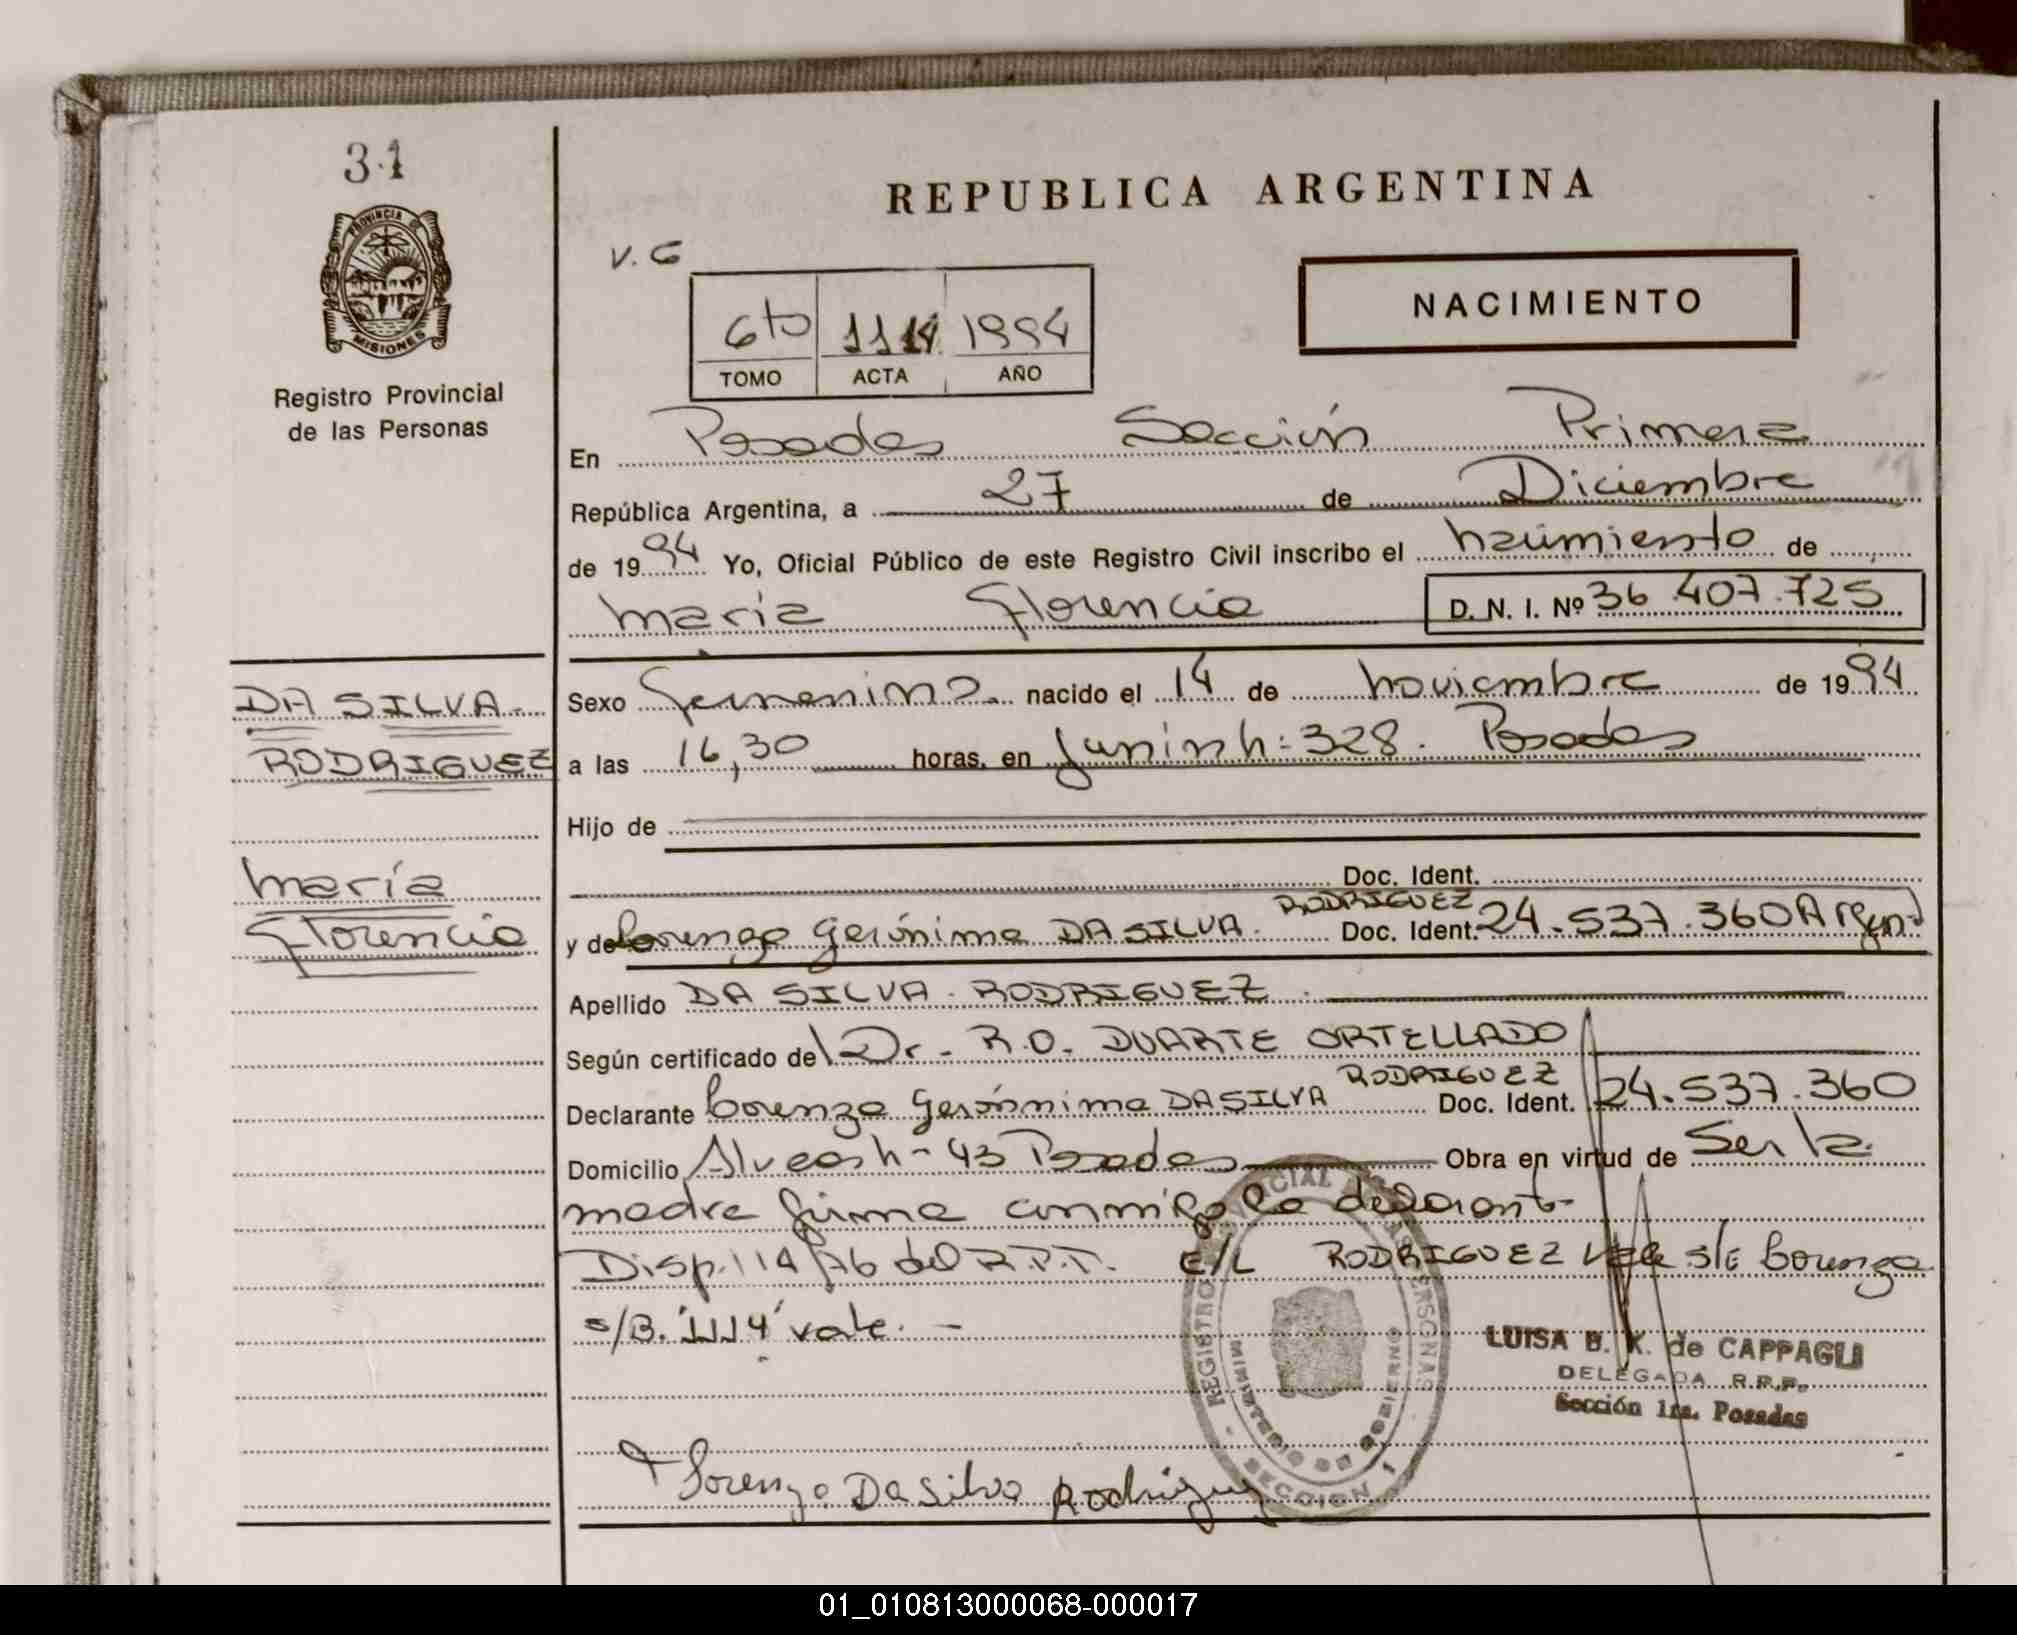 31
PROVINCIA DE
MISIONES
Registro Provincial
de las Personas
REPUBLICA ARGENTINA
V. 6
NACIMIENTO
6to 1114 1994
TOMO ACTA AÑO
En Posadas Sección Primera
República Argentina, a 27 de Diciembre
de 1994 Yo, Oficial Público de este Registro Civil inscribo el nacimiento de
María Florencia D. N. I. Nº 36.407.725
DA SILVA.
RODRIGUEZ
María
Florencia
Sexo Femenino. nacido el 14 de noviembre de 1994
a las 16,30 horas, en Junín h: 328. Posadas
Hijo de
Doc. Ident.
RODRIGUEZ
y de Lorenza Gerónima DA SILVA. Doc. Ident. 24.537.360 Argent
Apellido DA SILVA. RODRIGUEZ.
Según certificado del Dr. R.O. DUARTE ORTELLADO
RODRIGUEZ
Declarante Lorenza Gerónima DA SILVA Doc. Ident. 24.537.360
Domicilio Alvear h- 43 Posadas Obra en virtud de Ser la
madre firma conmigo la declarante
Disp. 114/76 del R.P.P. E/L RODRIGUEZ Vale s/E Lorenza
s/B. "1114" vale. -
REGISTRO PERSONAS
MINISTERIO DE GOBIERNO
SECCION 1
LUISA B. K. de CAPPAGLI
DELEGADA R.P.P.
Sección 1ra. Posadas
Lorenza Da Silva Rodriguez
01_010813000068-000017